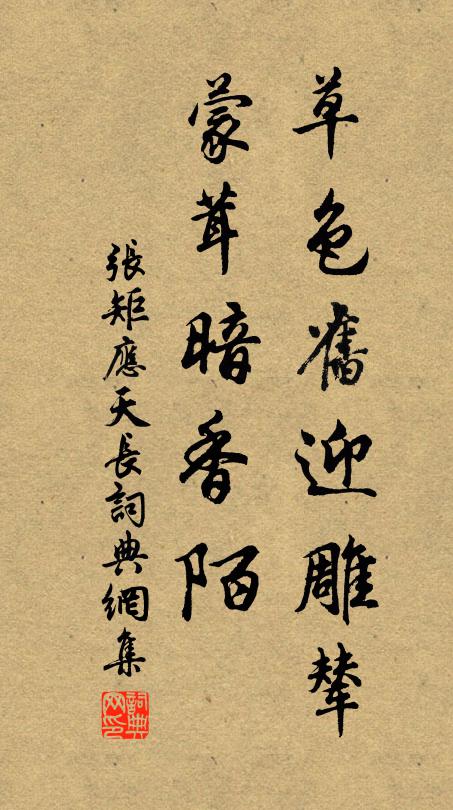 草色舊迎雕輦
蒙茸暗香陌
張矩應天長詞典網集
詞典网印